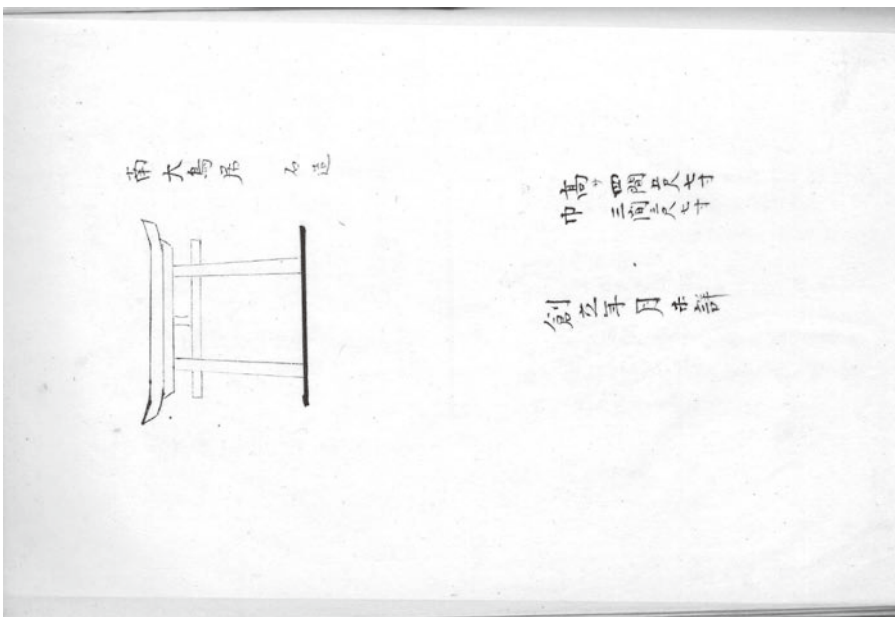 南大鳥居 石造
高サ四間五尺七寸
巾三間三尺七寸
創立年月未詳